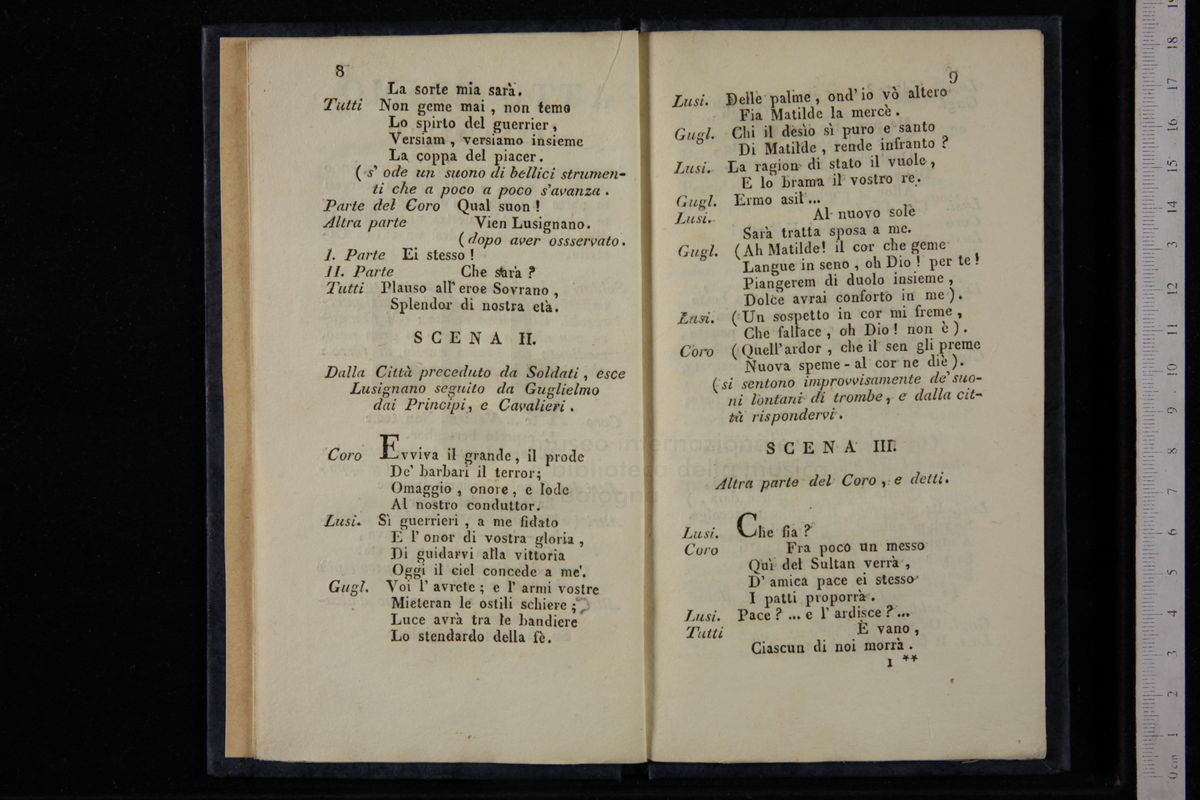 8
La sorte mia sarà.
Tutti Non geme mai , non teme
Lo spirto del guerrier ,
Versiam , versiamo insieme
La coppa del piacer .
( s' ode un suono di bellici strumen-
ti che a poco a poco s'avanza .
Parte del Coro Qual suon !
Altra parte Vien Lusignano .
( dopo aver ossservato .
I. Parte Ei stesso !
II. Parte Che sarà ?
Tutti Plauso all' eroe Sovrano ,
Splendor di nostra età .
SCENA II.
Dalla Città preceduto da Soldati , esce
Lusignano seguito da Guglielmo
dai Principi , e Cavalieri .
Coro Evviva il grande , il prode
De' barbari il terror ;
Omaggio , onore , e lode
Al nostro conduttor .
Lusi. Sì guerrieri , a me fidato
E l' onor di vostra gloria ,
Di guidarvi alla vittoria
Oggi il ciel concede a me'.
Gugl. Voi l' avrete ; e l' armi vostre
Mieteran le ostili schiere ;
Luce avrà tra le bandiere
Lo stendardo della fè .
9
Lusi. Delle palme , ond' io vò altero
Fia Matilde la mercè .
Gugl. Chi il desìo sì puro e santo
Di Matilde , rende infranto ?
Lusi. La ragion di stato il vuole ,
E lo brama il vostro re .
Gugl. Ermo asil ...
Lusi. Al nuovo sole
Sarà tratta sposa a me .
Gugl. ( Ah Matilde ! il cor che geme
Langue in seno , oh Dio ! per te !
Piangerem di duolo insieme ,
Dolce avrai conforto in me ) .
Lusi. ( Un sospetto in cor mi freme ,
Che fallace , oh Dio ! non è ) .
Coro ( Quell' ardor , che il sen gli preme
Nuova speme - al cor ne diè ) .
( si sentono improvvisamente de' suo-
ni lontani di trombe , e dalla cit-
tà rispondervi .
SCENA III.
Altra parte del Coro , e detti .
Lusi. Che fia ?
Coro Fra poco un messo
Quì del Sultan verrà ,
D' amica pace ei stesso
I patti proporrà .
Lusi. Pace ? ... e l' ardisce ? ...
Tutti È vano ,
Ciascun di noi morrà .
1 **
museo internazionale
biblioteca della musica
bologna
0 cm 1 2 3 4 5 6 7 8 9 10 11 12 13 14 15 16 17 18 19